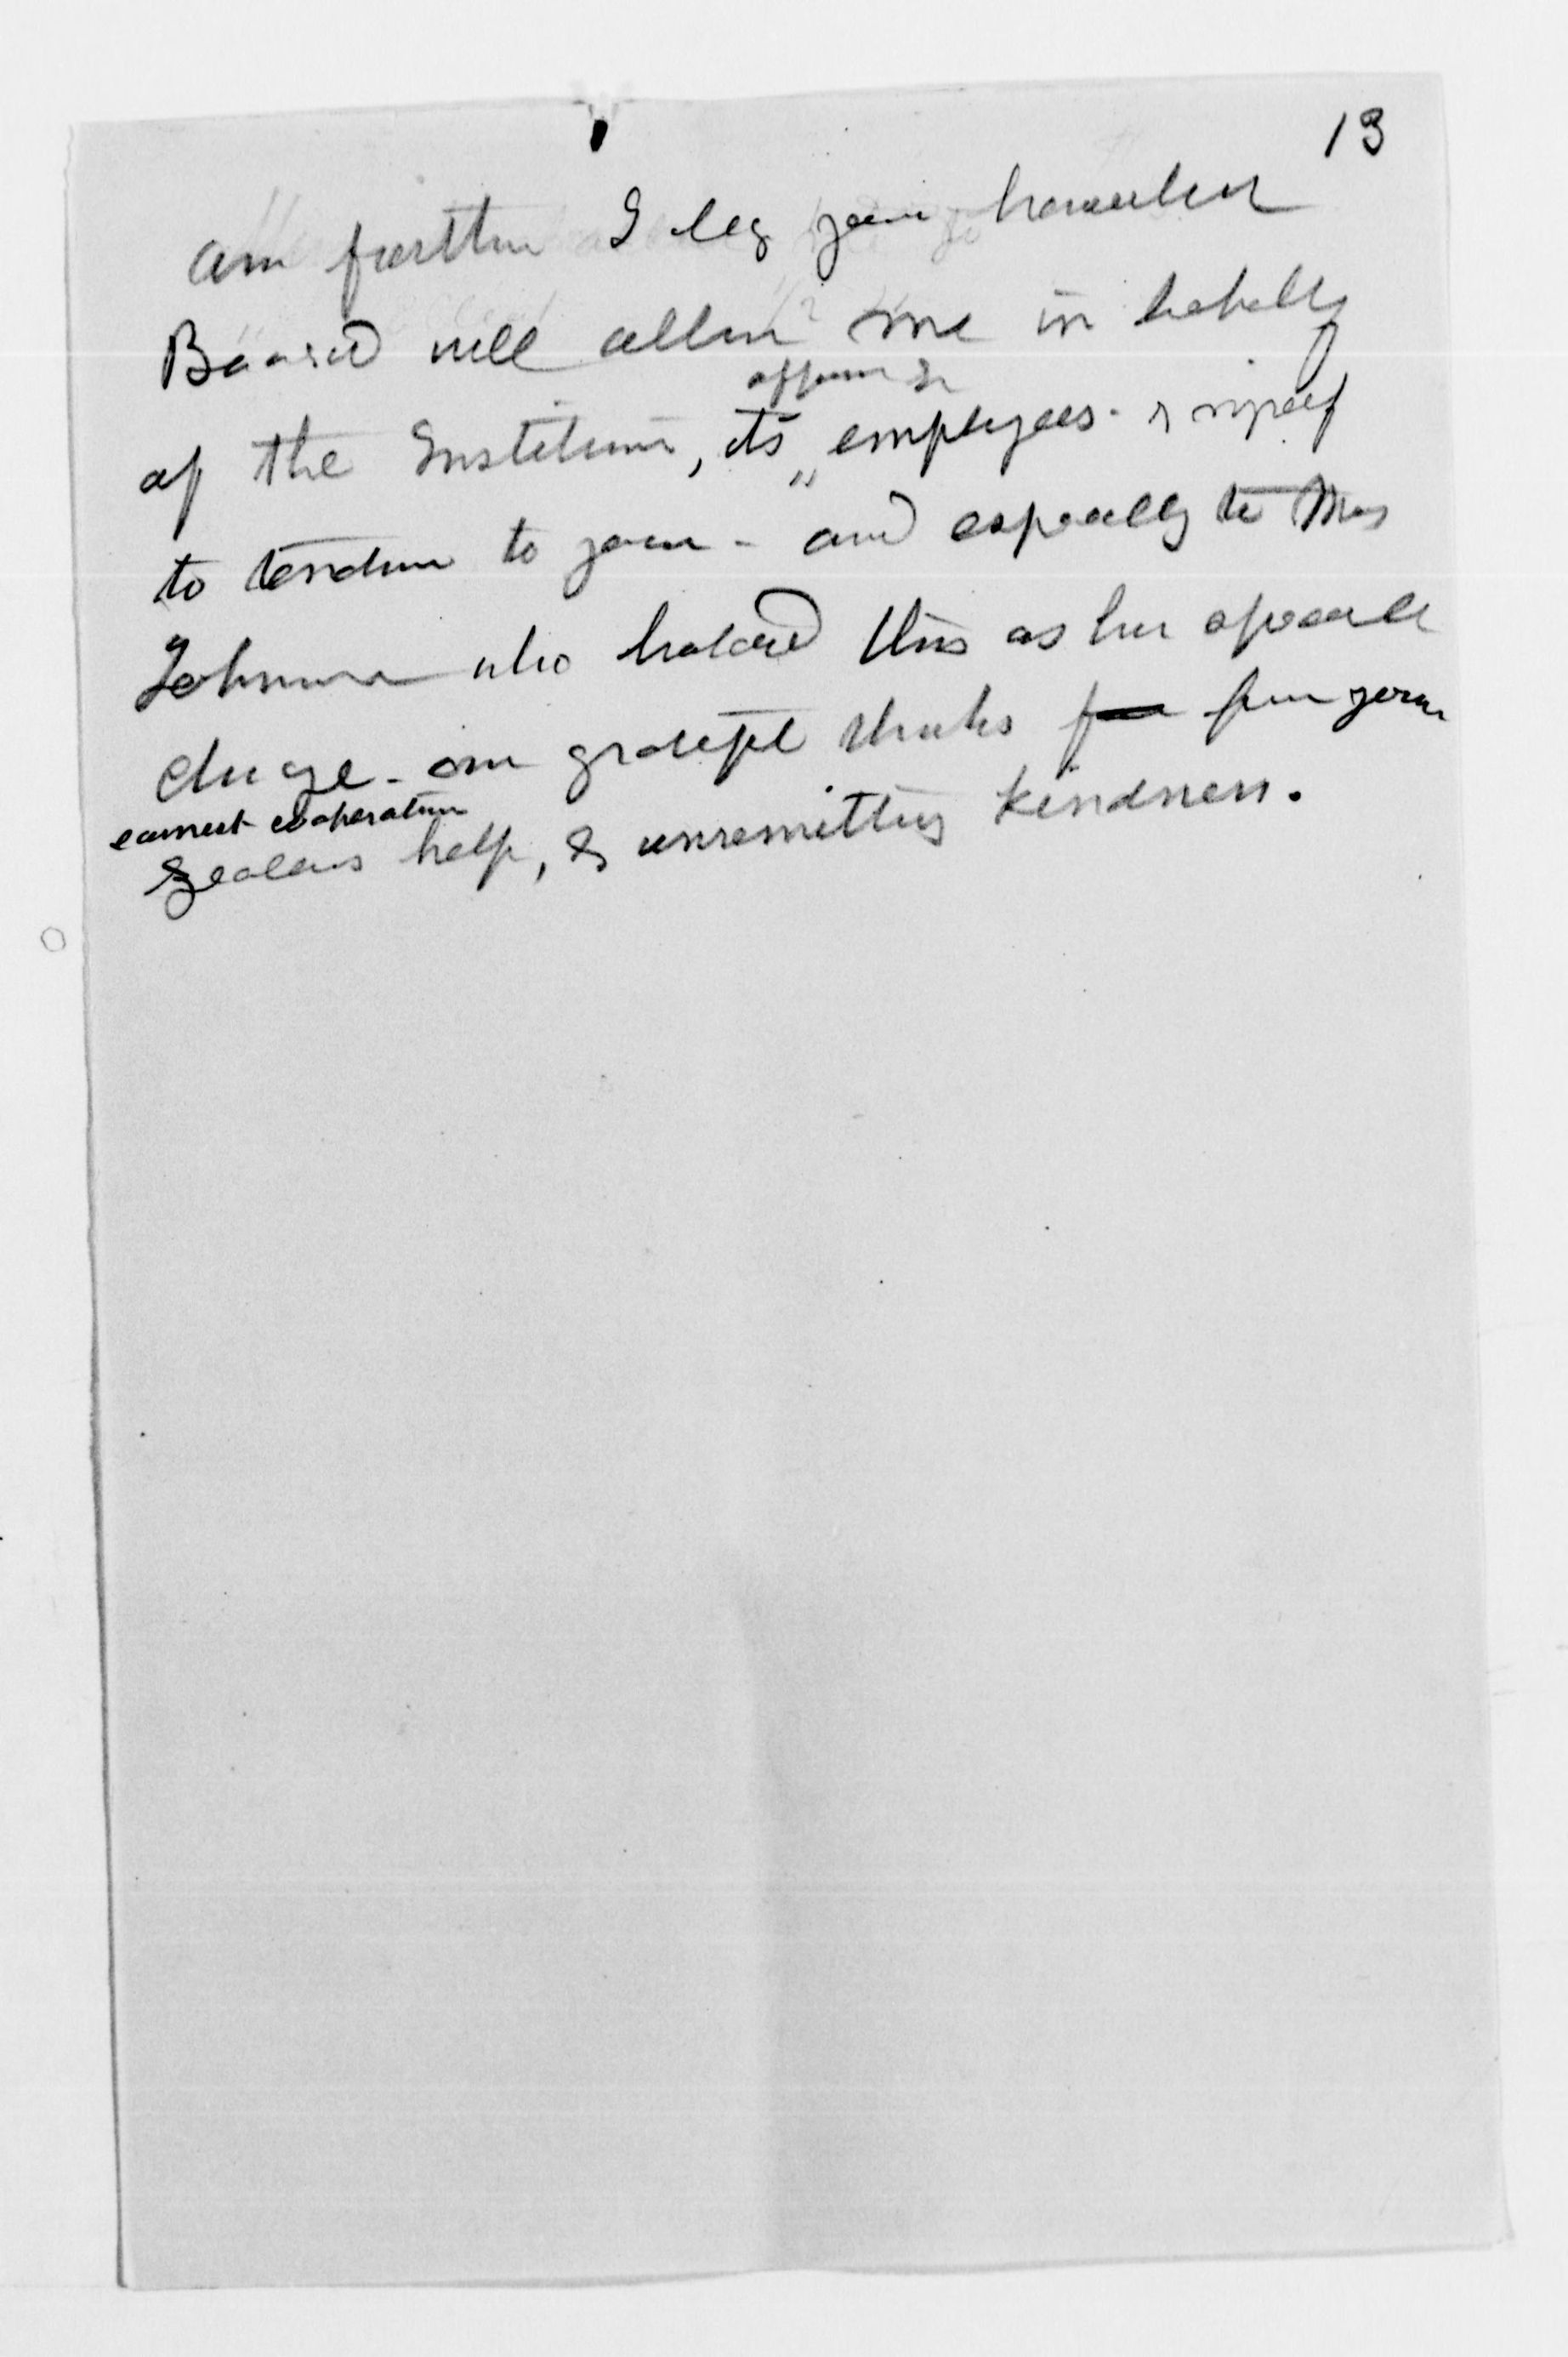 13
am further I beg your honorable
Board will allow me in behalf
of the Institution, its officers & employees - & myself
to tender to you - and especially to Mrs
Johnson who has this as her special
charge - our grateful thanks for your
earnest cooperation
zealous help, & unremitting kindness.